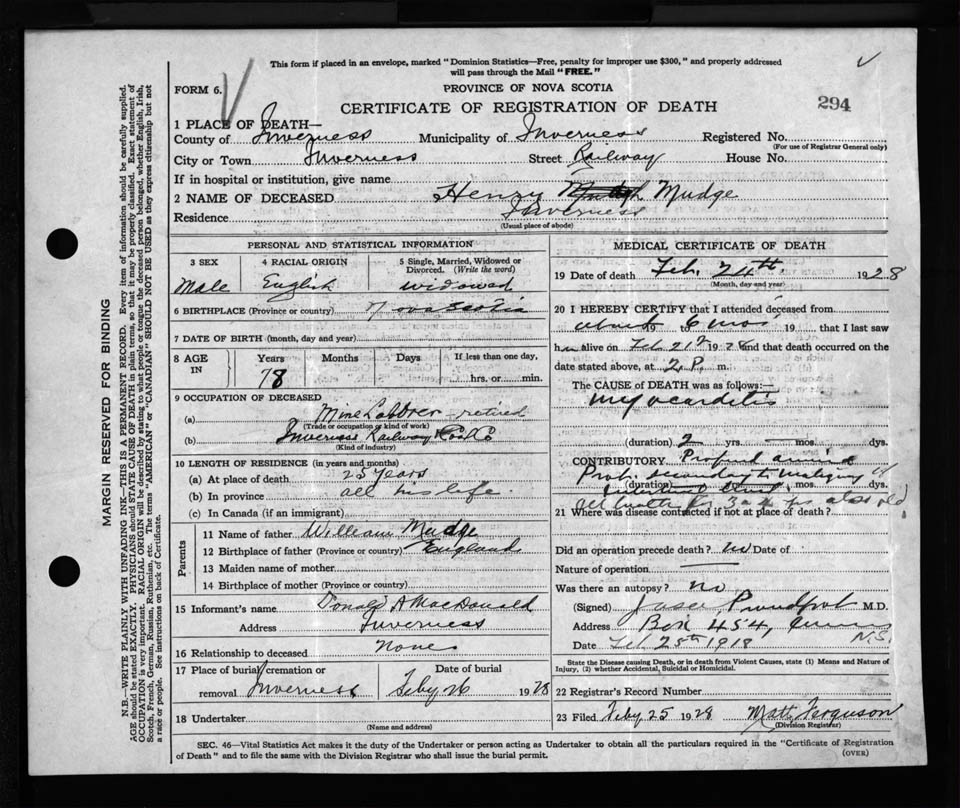 This form if placed in an envelope, marked "Dominion Statistics—Free, penalty for improper use $300," and properly addressed
will pass through the Mail "FREE."
FORM 6.
PROVINCE OF NOVA SCOTIA
CERTIFICATE OF REGISTRATION OF DEATH
294
1 PLACE OF DEATH—
County of Inverness Municipality of Inverness Registered No.
(For use of Registrar General only)
City or Town Inverness Street Railway House No.
If in hospital or institution, give name
2 NAME OF DECEASED Henry Mudge
Residence Inverness
(Usual place of abode)
PERSONAL AND STATISTICAL INFORMATION
3 SEX
Male
4 RACIAL ORIGIN
English
5 Single, Married, Widowed or
Divorced. (Write the word)
widowed
6 BIRTHPLACE (Province or country) Nova Scotia
7 DATE OF BIRTH (month, day and year)
8 AGE
IN
Years
78
Months
Days
If less than one day,
hrs. or min.
9 OCCUPATION OF DECEASED
(a) Mine Labourer - retired
(Trade or occupation or kind of work)
(b) Inverness Railway Coal Co
(Kind of industry)
10 LENGTH OF RESIDENCE (in years and months)
(a) At place of death 25 years
(b) In province all his life.
(c) In Canada (if an immigrant)
Parents
11 Name of father William Mudge
12 Birthplace of father (Province or country) England
13 Maiden name of mother
14 Birthplace of mother (Province or country)
15 Informant's name Donald A MacDonald
Address Inverness
16 Relationship to deceased none
17 Place of burial, cremation or
removal Inverness
Date of burial
Feby 26 1928
18 Undertaker
(Name and address)
MEDICAL CERTIFICATE OF DEATH
19 Date of death Feb. 24th. 1928
(Month, day and year)
20 I HEREBY CERTIFY that I attended deceased from
about 19 to 6 mos 19 that I last saw
him alive on Feb 21 1928 and that death occurred on the
date stated above, at 2 P. m.
The CAUSE of DEATH was as follows:—
myocarditis
(duration) 2 yrs. mos. dys.
CONTRIBUTORY
Prob. secondary to
(duration) mos. dys.
21 Where was disease contracted if not at place of death?
Did an operation precede death? no Date of
Nature of operation
Was there an autopsy? no
(Signed) Proudfoot M.D.
Address Box 454, Inverness
N.S.
Date Feb 25th 1918
State the Disease causing Death, or in death from Violent Causes, state (1) Means and Nature of
Injury, (2) whether Accidental, Suicidal or Homicidal.
22 Registrar's Record Number
23 Filed Feby 25 1928 Matt Ferguson
(Division Registrar)
SEC. 46—Vital Statistics Act makes it the duty of the Undertaker or Person acting as Undertaker to obtain all the particulars required in the "Certificate of Registration
of Death" and to file the same with the Division Registrar who shall issue the burial permit.
(OVER)
MARGIN RESERVED FOR BINDING
N.B.—WRITE PLAINLY WITH UNFADING INK—THIS IS A PERMANENT RECORD. Every item of information should be carefully supplied.
AGE should be stated EXACTLY. PHYSICIANS should STATE CAUSE OF DEATH in plain terms, so that it may be properly classified. Exact statement of
OCCUPATION is very important. RACIAL ORIGIN will be described by stating to what people or tongue the deceased person belonged, whether English, Irish,
Scotch, French, German, Russian, Ruthenian, etc. The terms "AMERICAN" or "CANADIAN" SHOULD NOT BE USED as they express citizenship but not
a race or people. See instructions on back of Certificate.